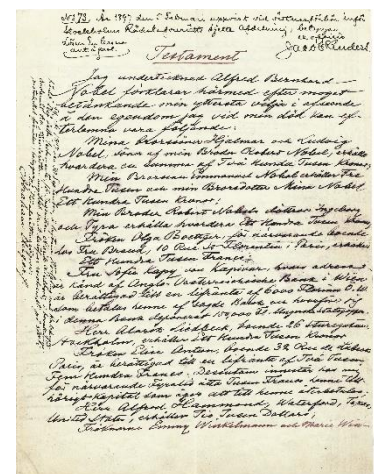 No 73. År 1897 den 5 Februari uppvist vid vittnesförhör inför
Stockholms Rådstufvurätts sjette Afdelning; betygar
ex officio
Testament
Jag undertecknad Alfred Bernhard
Nobel förklarar härmed efter moget
betänkande min yttersta vilja i afseende
å den egendom jag vid min död kan ef-
terlemna vara följande:
Mina Brorsöner Hjalmar och Ludvig
Nobel, söner af min Broder Robert Nobel, erhålla
hvardera en summa af Två Hundra Tusen Kronor;
Min Brorson Emmanuel Nobel erhåller Tre
Hundra Tusen och min Brorsdotter Mina Nobel
Ett Hundra Tusen Kronor;
Min Broder Robert Nobels döttrar Ingeborg
och Tyra erhålla hvardera Ett Hundra Tusen Kronor;
Fröken Olga Boettger, för närvarande boende
hos Fru Brand, 10 Rue St Florentin i Paris, erhåller
Ett Hundra Tusen Francs;
Fru Sofie Kapy von Kapivar, hvars adress
är känd af Anglo-Oesterreichische Bank i Wien
är berättigad till en lifränta af 6000 Florins Ö.W.
som betalas henne af sagde Bank och hvarför jag
i denna Bank deponerat 150,000 Fl. i Ungerska statspapper;
Herr Alarik Liedbeck, boende 26 Sturegatan,
Stockholm, erhåller Ett Hundra Tusen Kronor;
Fröken Elise Antun, boende 32 Rue de Lubeck,
Paris, är berättigad till en lifränta af Två Tusen
Fem Hundra Francs. Dessutom innestår hos mig
för närvarande Fyratio åtta Tusen Francs henne till-
hörigt kapital som eger att till henne återbetalas;
Herr Alfred Hammond, Waterford, Texas,
United States, erhåller Tio Tusen Dollars;
Fröknarne Emmy Winkelmann och Marie Win-